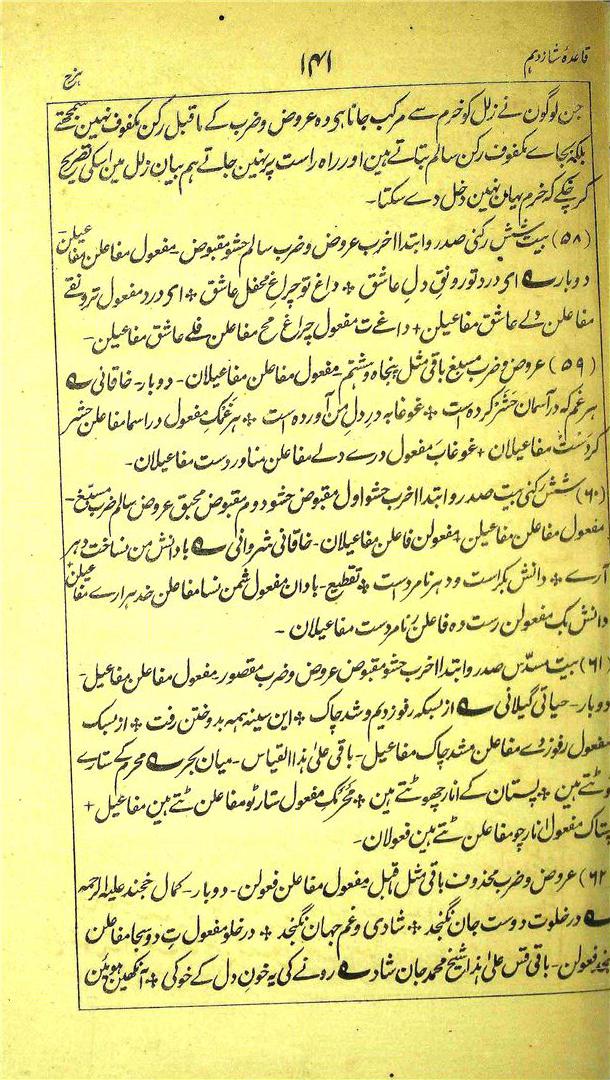 قاعدۂ شانزدہم
۱۴۱
ہزج
جن لوگون نے زلل کو خرم سے مرکب جانا ہی وہ عروض و ضرب کے ماقبل رکن مکفوف نہین سمجھتے
بلکہ بجاے مکفوف رکن سالم بتاتے ہین اور راہ راست پر نہین جاتے ہم بیان زلل مین اسکی تصریح
کر چکے کہ خرم یہان نہین دخل دے سکتا۔
(۵۸) بیت شش رکنی صدر و ابتدا اخرب عروض و ضرب سالم حشو مقبوض۔ مفعول مفاعلن مفاعیلن
دوبار ؎ ای درد تو رونق دل عاشق ٭ داغ تو چراغ محفل عاشق ٭ ای درد مفعول ترو نقے
مفاعلن دلے عاشق مفاعیلن + داغے ت مفعول چراغ مح مفاعلن فلے عاشق مفاعیلن۔
(۵۹) عروض و ضرب مسبغ باقی مثل پنجاہ و ہشتم۔ مفعول مفاعلن مفاعیلان۔ دوبار۔ خاقانی ؎
ہر غم کہ در آسمان حشر کردہ است ٭ غوغا بہ در دل من آوردہ است ٭ ہر غمک مفعول در اسما مفاعلن حشر
کردست مفاعیلان + غوغاب مفعول درے دلے مفاعلن مناوردست مفاعیلان۔
(۶۰) شش رکنی بیت صدر و ابتدا اخرب حشو اول مقبوض حشو دوم مقبوض محبق عروض سالم ضرب مسبغ۔
مفعول مفاعلن مفاعیلن + مفعولن فاعلن مفاعیلان۔ خاقانی شروانی ؎ با دانش من نساخت دہر
آرے ٭ دانش بکر است و دہر نامردست ٭ تقطیع۔ بادان مفعول شمن نسا مفاعلن خدہرارے مفاعیلن
دانش بک مفعولن رست دہ فاعلن رنامردست مفاعیلان۔
(۶۱) بیت مسدّس صدر و ابتدا اخرب حشو مقبوض عروض و ضرب مقصور۔ مفعول مفاعلن مفاعیل۔
دوبار۔ حیاتی گیلانی ؎ از بسکہ رفو زدیم و شد چاک ٭ این سینہ ہمہ بدوختن رفت ٭ از بسک
مفعول رفو زدے مفاعلن مشد چاک مفاعیل۔ باقی علیٰ ہذا القیاس۔ میان بحر ؎ محرم کے ستارے
ٹوٹتے ہین ٭ پستان کے انار چھوٹتے ہین ٭ محرمک مفعول ستار ٹو مفاعلن ٹتے ہین مفاعیل +
پستاک مفعول انار چو مفاعلن ٹتے ہین فعولان۔
(۶۲) عروض و ضرب محذوف باقی مثل ماقبل مفعول مفاعلن فعولن۔ دوبار۔ کمال خجند علیہ الرحمہ
؎ در خلوت دوست جان نگنجد ٭ شادی و غم جہان نگنجد ٭ در خلو مفعول ت دوسجا مفاعلن
نگنجد فعولن۔ باقی قس علیٰ ہذا شیخ محمد جان شاد ؎ رونے کی یہ خون دل کے خوکی ٭ آنکھین ہوئین